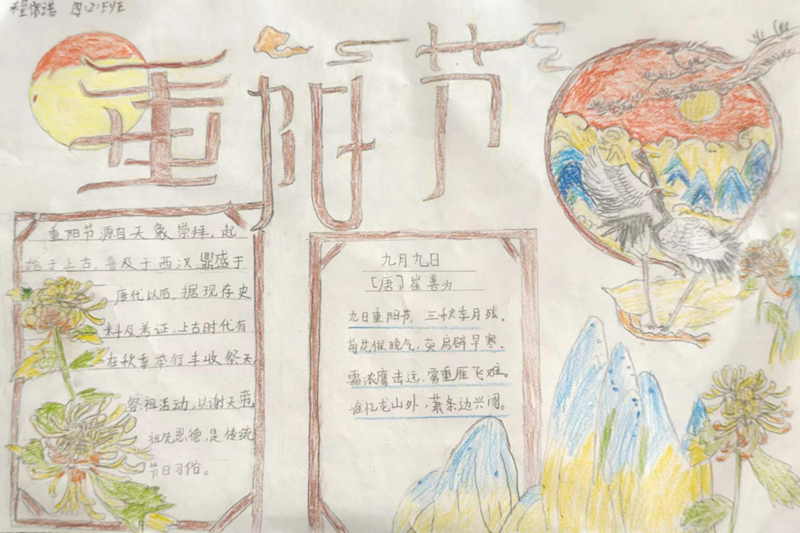 重阳节
重阳节源自天象崇拜，起
始于上古，普及于西汉，鼎盛于
唐代以后，据现存史
料及考证，上古时代有
在秋季举行丰收祭天
祭祖活动，以谢天帝，
祖先恩德，是传统
节日习俗。
九月九日
[唐]崔善为
九日重阳节，三秋季月残。
菊花催晚气，萸房辟早寒。
霜浓鹰击远，雾重雁飞难。
谁忆龙山外，萧条边兴阑。